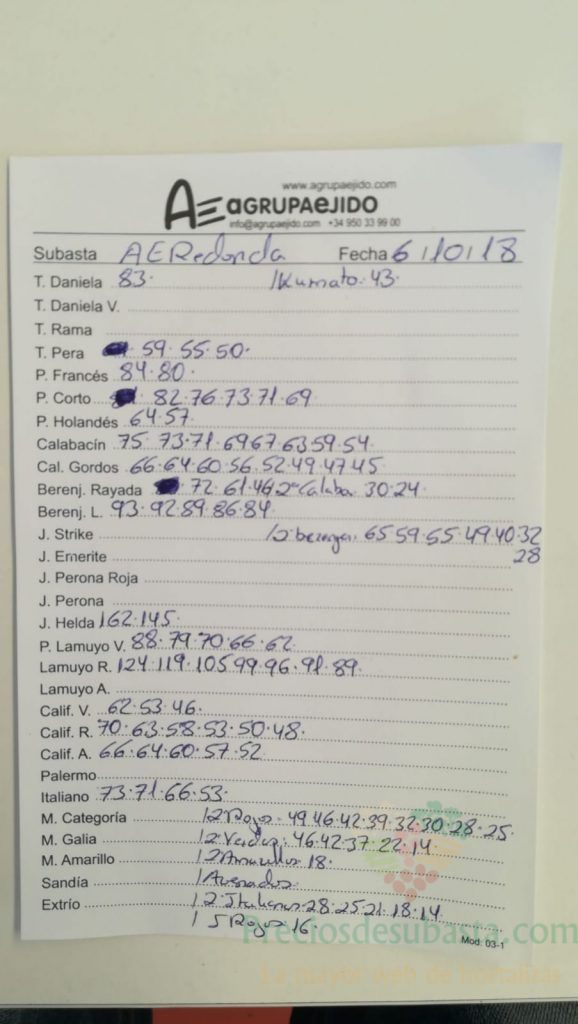 www.agrupaejido.com
AE AGRUPAEJIDO
info@agrupaejido.com +34 950 33 99 00
Subasta AE Redonda Fecha 6/10/18
T. Daniela 83. /Kumato. 43.
T. Daniela V.
T. Rama
T. Pera 59. 55. 50.
P. Francés 84. 80.
P. Corto 82. 76. 73. 71. 69
P. Holandés 64. 57.
Calabacín 75. 73. 71. 69 67. 63 59. 54.
Cal. Gordos 66. 64. 60. 56. 52. 49. 47. 45
Berenj. Rayada 72. 61. 46/2ª Calaba. 30. 24.
Berenj. L. 93. 92. 89. 86. 84.
J. Strike 65 59. 55. 49. 40. 32
J. Emerite 28
J. Perona Roja
J. Perona
J. Helda 162. 145.
P. Lamuyo V. 88. 79. 70. 66. 62
Lamuyo R. 124. 119. 105 99. 96. 91. 89.
Lamuyo A.
Calif. V. 62. 53. 46.
Calif. R. 70. 63. 58. 53. 50. 48.
Calif. A. 66. 64. 60. 57. 52
Palermo
Italiano 73. 71. 66. 53.
M. Categoría /2 Rojos. 49. 46. 42. 39. 32. 30. 28. 25.
M. Galia /2 Verdes: 46. 42. 37. 22. 14.
M. Amarillo /2 Amarillos 18.
Sandía
Extrío /2 Italianos. 28. 25. 21. 18. 14.
Rojos 16.
Mod. 03-1
Preciosdesubasta.com
La mayor web de hortalizas